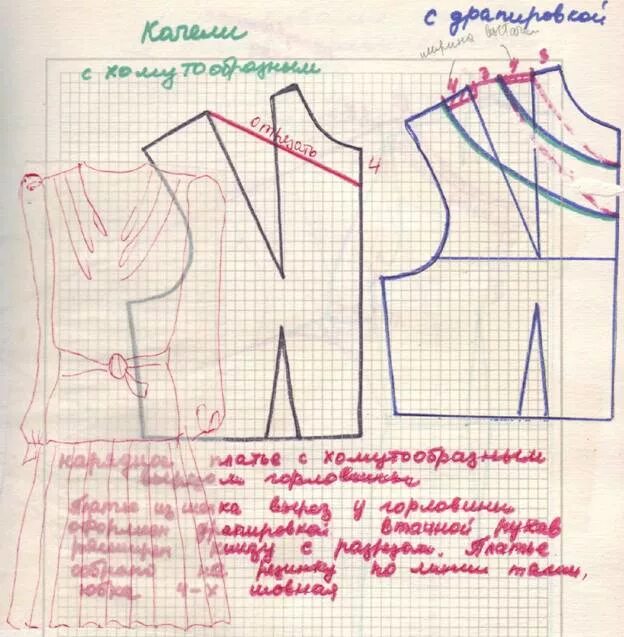 Качели
с хомутообразным
с драпировкой
ширина вытачки
4 3 4 3
отрезать
4
нарядное платье с хомутообразным
вырезом горловины
Платье из шелка вырез у горловины
оформлен драпировкой втачной рукав
расширен книзу с разрезом. Платье
собрано на резинку по линии талии,
юбка 4-х шовная